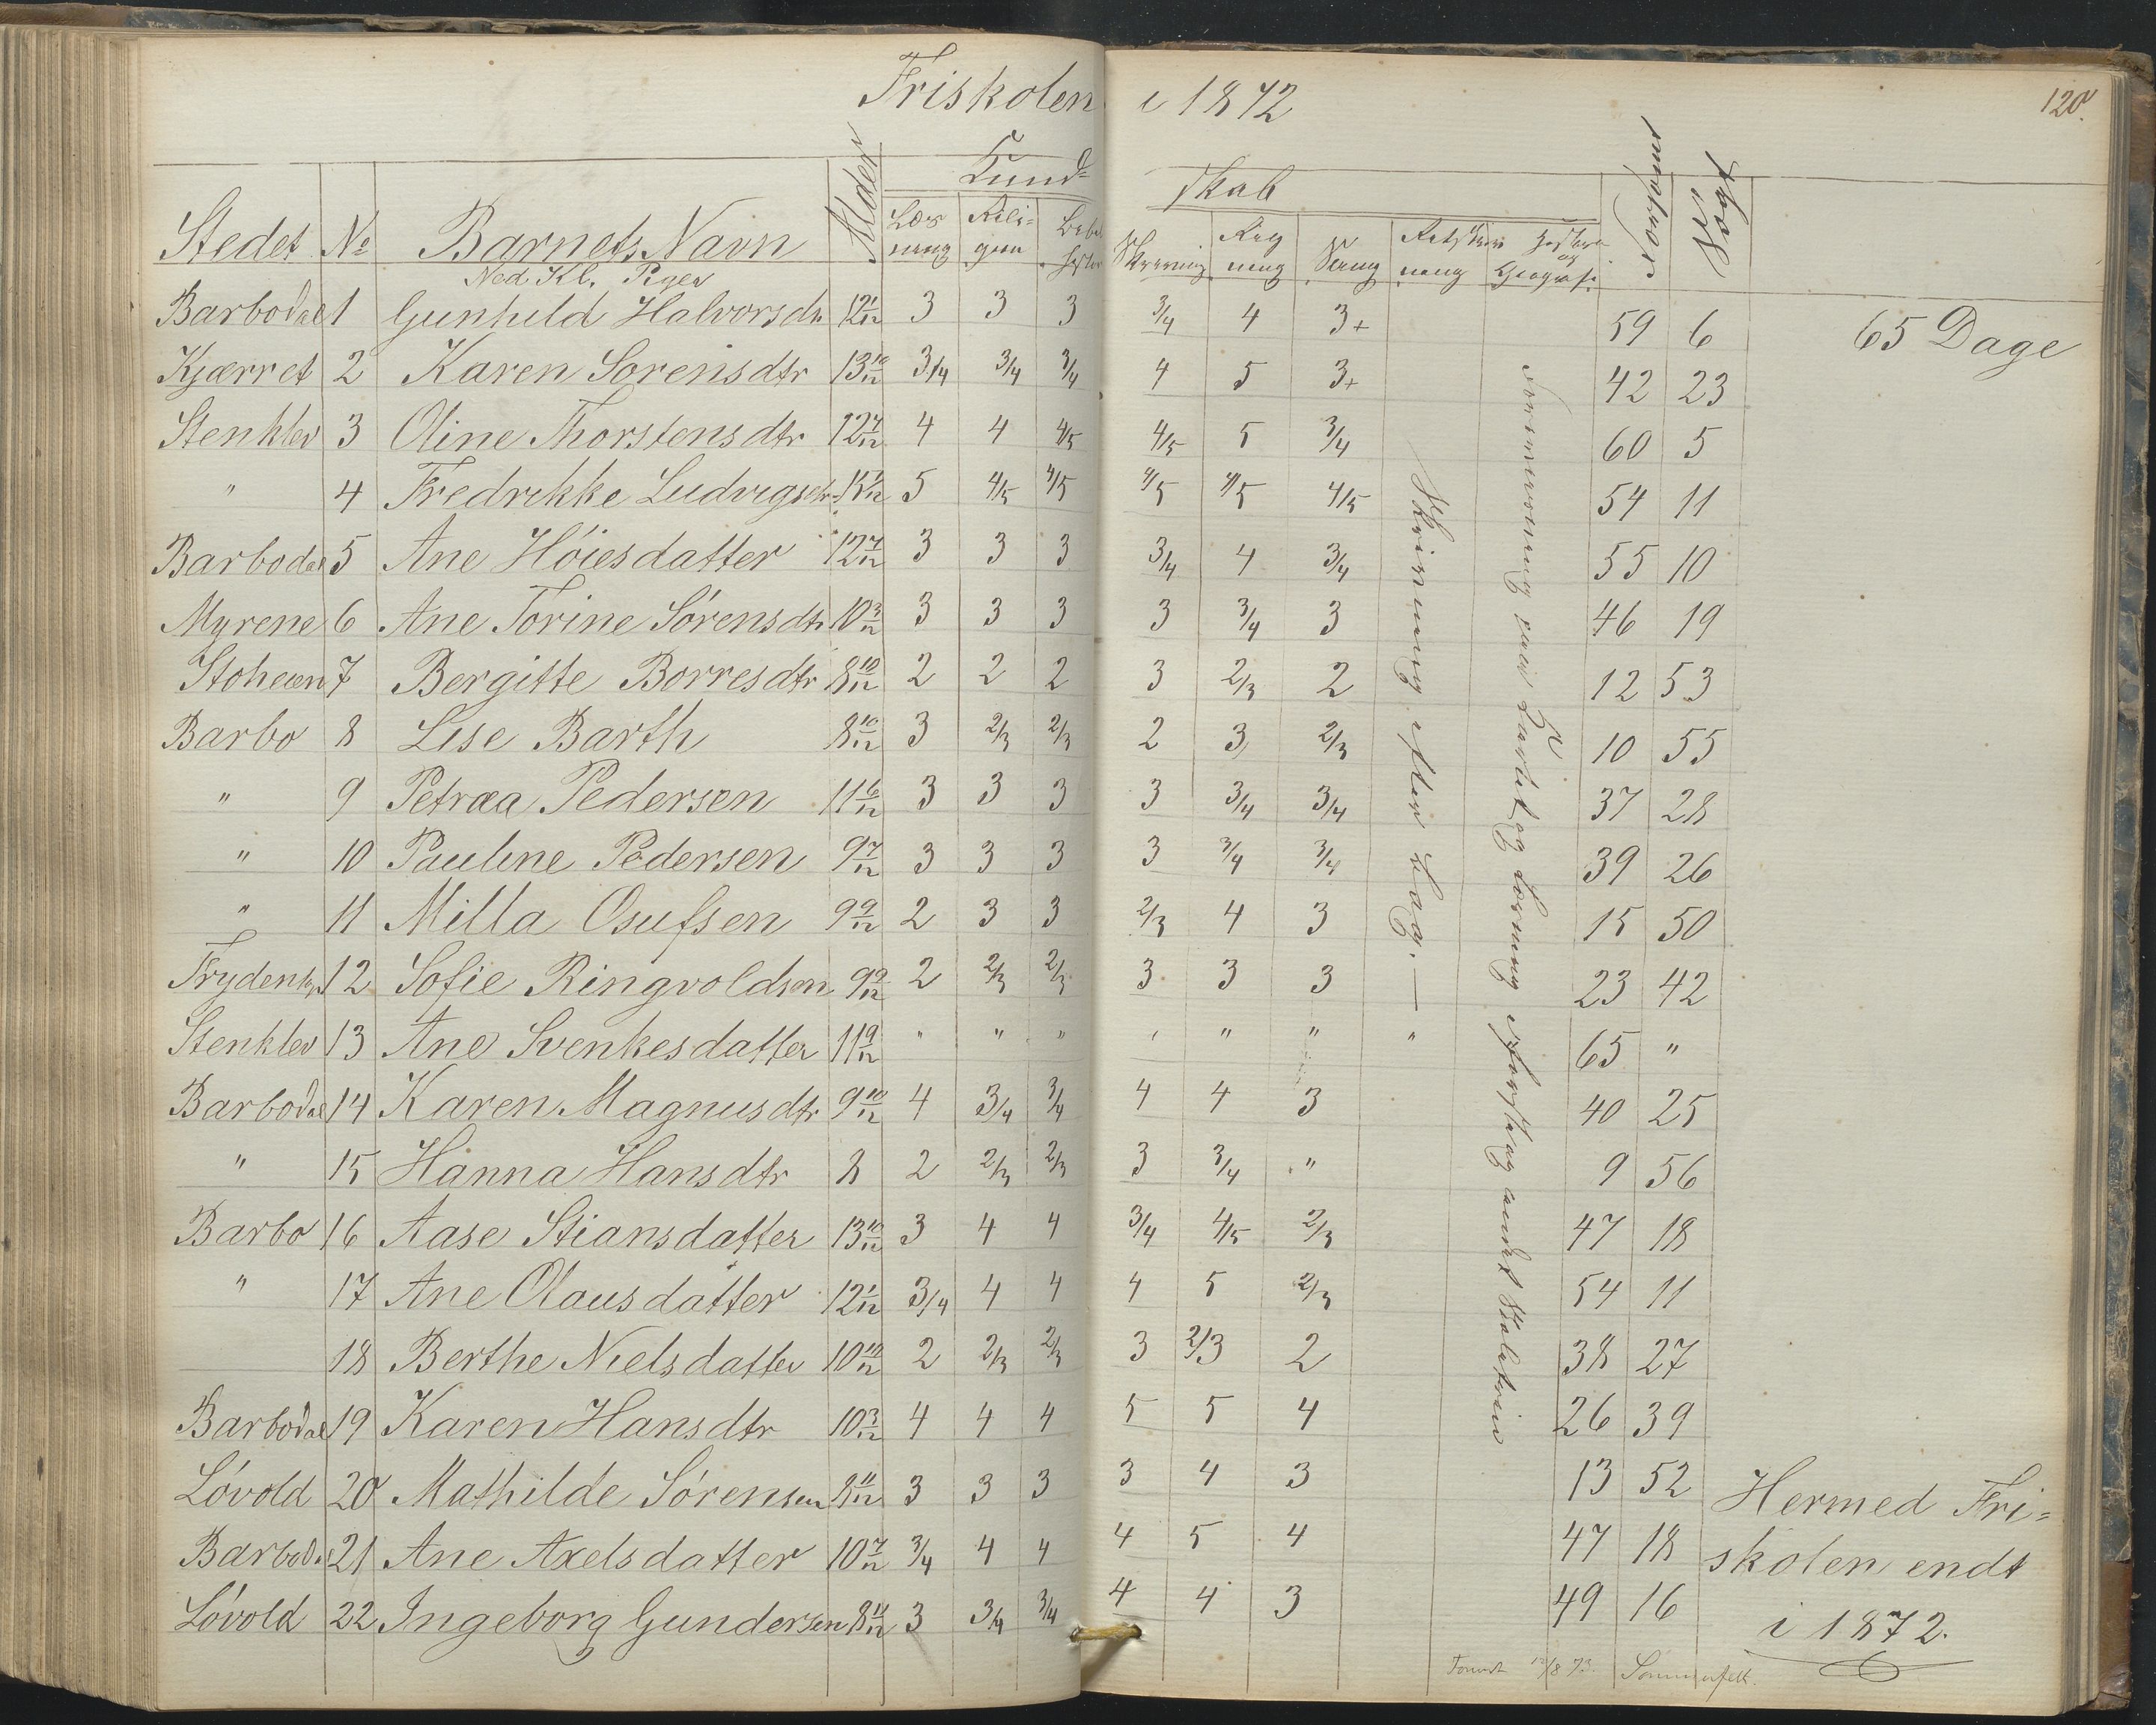 Friskolen i 1872
120.
Kund= skab
Stedet No Barnets Navn Alder Læs ning Reli= gion Skrivning Reg ning Sang Forsømt Mødt
Ned. Kl. Piger
Barbodal 1 Gunhild Halvorsdtr 12 1/12 3 3 3 3/4 4 3+ 59 6 65 Dage
Kjærret 2 Karen Sorensdtr 13 10/12 3/4 3/4 3/4 4 5 3+ 42 23
Stenklev 3 Oline Thorstensdtr 12 7/12 4 4 4/5 4/5 5 3/4 60 5
" 4 Fredrikke Ludvigsdtr 5 4/5 4/5 4/5 4/5 4/5 54 11
Barbodal 5 Ane Höiesdatter 12 7/12 3 3 3 3/4 4 3/4 55 10
Myrene 6 Ane Torine Sörensdtr 10 3/12 3 3 3 3 3/4 3 46 19
7 Bergitte Borresdtr 8 10/12 2 2 2 3 2/3 2 12 53
Barbo 8 Lise Barth 8 10/12 3 2/3 2/3 2 3 2/3 10 55
" 9 Petraa Pedersen 11 6/12 3 3 3 3 3/4 3/4 37 28
" 10 Pauline Pedersen 9 7/12 3 3 3 3 3/4 3/4 39 26
" 11 Milla Osufsen 9 9/12 2 3 3 2/3 4 3 15 50
12 Sofie Ringvoldsen 9 9/12 2 2/3 2/3 3 3 3 23 42
Stenklev 13 Ane Svenkesdatter 11 9/12 " " " " " " " 65 "
Barbodal 14 Karen Magnusdtr 9 10/12 4 3/4 3/4 4 4 3 40 25
" 15 Hanna Hansdtr 8 2 2/3 2/3 3 3/4 " 9 56
Barbo 16 Aase Stiansdatter 13 10/12 3 4 4 3/4 4/5 2/3 47 18
" 17 Ane Olausdatter 12 1/12 3/4 4 4 4 5 2/3 54 11
18 Berthe Nielsdatter 10 10/12 2 2/3 2/3 3 2/3 2 38 27
Barbodal 19 Karen Hansdtr 10 3/12 4 4 4 5 5 4 26 39
Lövold 20 Mathilde Sörensen 8 11/12 3 3 3 3 4 3 13 52
Barbodal 21 Ane Axelsdatter 10 7/12 3/4 4 4 4 5 4 47 18
Lövold 22 Ingeborg Gundersen 8 11/12 3 3/4 3/4 4 4 3 49 16
Skrivning efter Bog. —
Hermed Fri=
skolen endt
i 1872.
12/8 73. Sommerfelt.